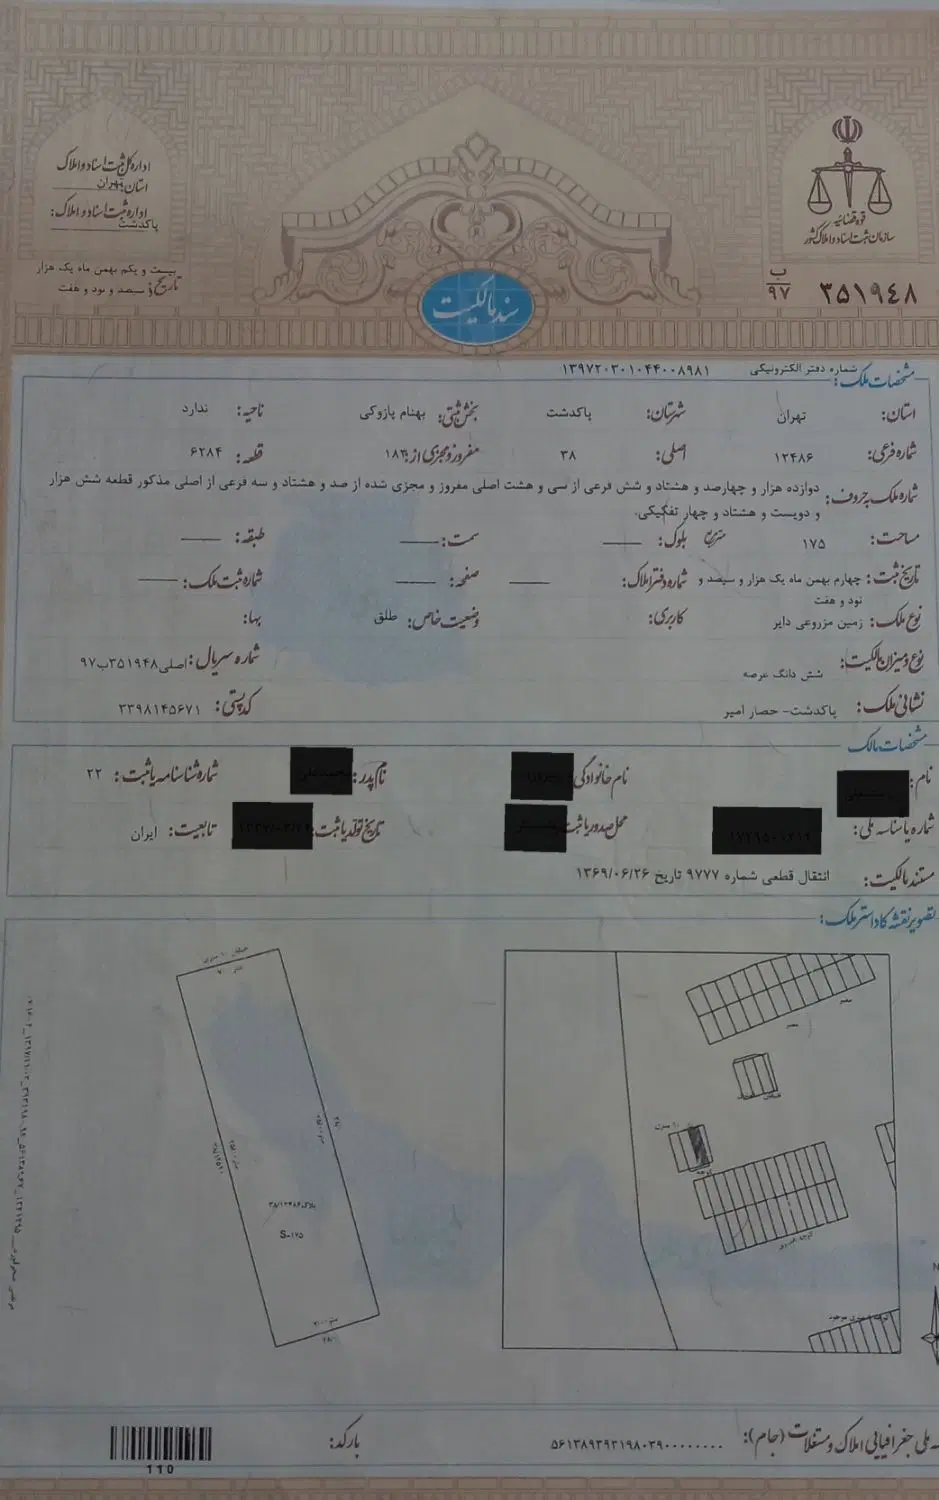 اداره کل ثبت اسناد و املاک
استان: تهران
اداره ثبت اسناد و املاک:
پاکدشت
تاریخ: بیست و یکم بهمن ماه یک هزار و سیصد و نود و هفت
قوه قضائیه
سازمان ثبت اسناد و املاک کشور
ب
۹۷
۳۵۱۹۴۸
سند مالکیت
مشخصات ملک: شماره دفتر الکترونیکی ۱۳۹۷۲۰۳۰۱۰۴۴۰۰۸۹۸۱
استان: تهران شهرستان: پاکدشت بخش ثبتی: بهنام پازوکی ناحیه: ندارد
شماره فرعی: ۱۲۴۸۶ اصلی: ۳۸ مفروز و مجزی از: ۱۸۳ قطعه: ۶۲۸۴
شماره ملک به حروف: دوازده هزار و چهارصد و هشتاد و شش فرعی از سی و هشت اصلی مفروز و مجزی شده از صد و هشتاد و سه فرعی از اصلی مذکور قطعه شش هزار
و دویست و هشتاد و چهار تفکیکی.
مساحت: ۱۷۵ مترمربع بلوک: سمت: طبقه:
تاریخ ثبت: چهارم بهمن ماه یک هزار و سیصد و شماره دفتر املاک: صفحه: شماره ثبت ملک:
نود و هفت
نوع ملک: زمین مزروعی دایر کاربری: وضعیت خاص: طلق بها:
نوع و میزان مالکیت: شش دانگ عرصه شماره سریال: اصلی ۳۵۱۹۴۸ب۹۷
نشانی ملک: پاکدشت- حصار امیر کد پستی: ۳۳۹۸۱۴۵۶۷۱
مشخصات مالک
نام: نام خانوادگی: نام پدر: شماره شناسنامه یا ثبت: ۲۲
شماره یا شناسه ملی: محل صدور یا ثبت تاریخ تولد یا ثبت: تابعیت: ایران
مستند مالکیت: انتقال قطعی شماره ۹۷۷۷ تاریخ ۱۳۶۹/۰۶/۲۶
تصویر نقشه کاداستر ملک:
پلاک ۳۸/۱۲۴۸۶
S=۱۷۵
N
ملی جغرافیایی املاک و مستغلات (جام): ۵۶۱۳۸۹۳۹۳۱۹۸۰۳۹۰۰۰۰۰۰۰۰۰
بارکد:
110